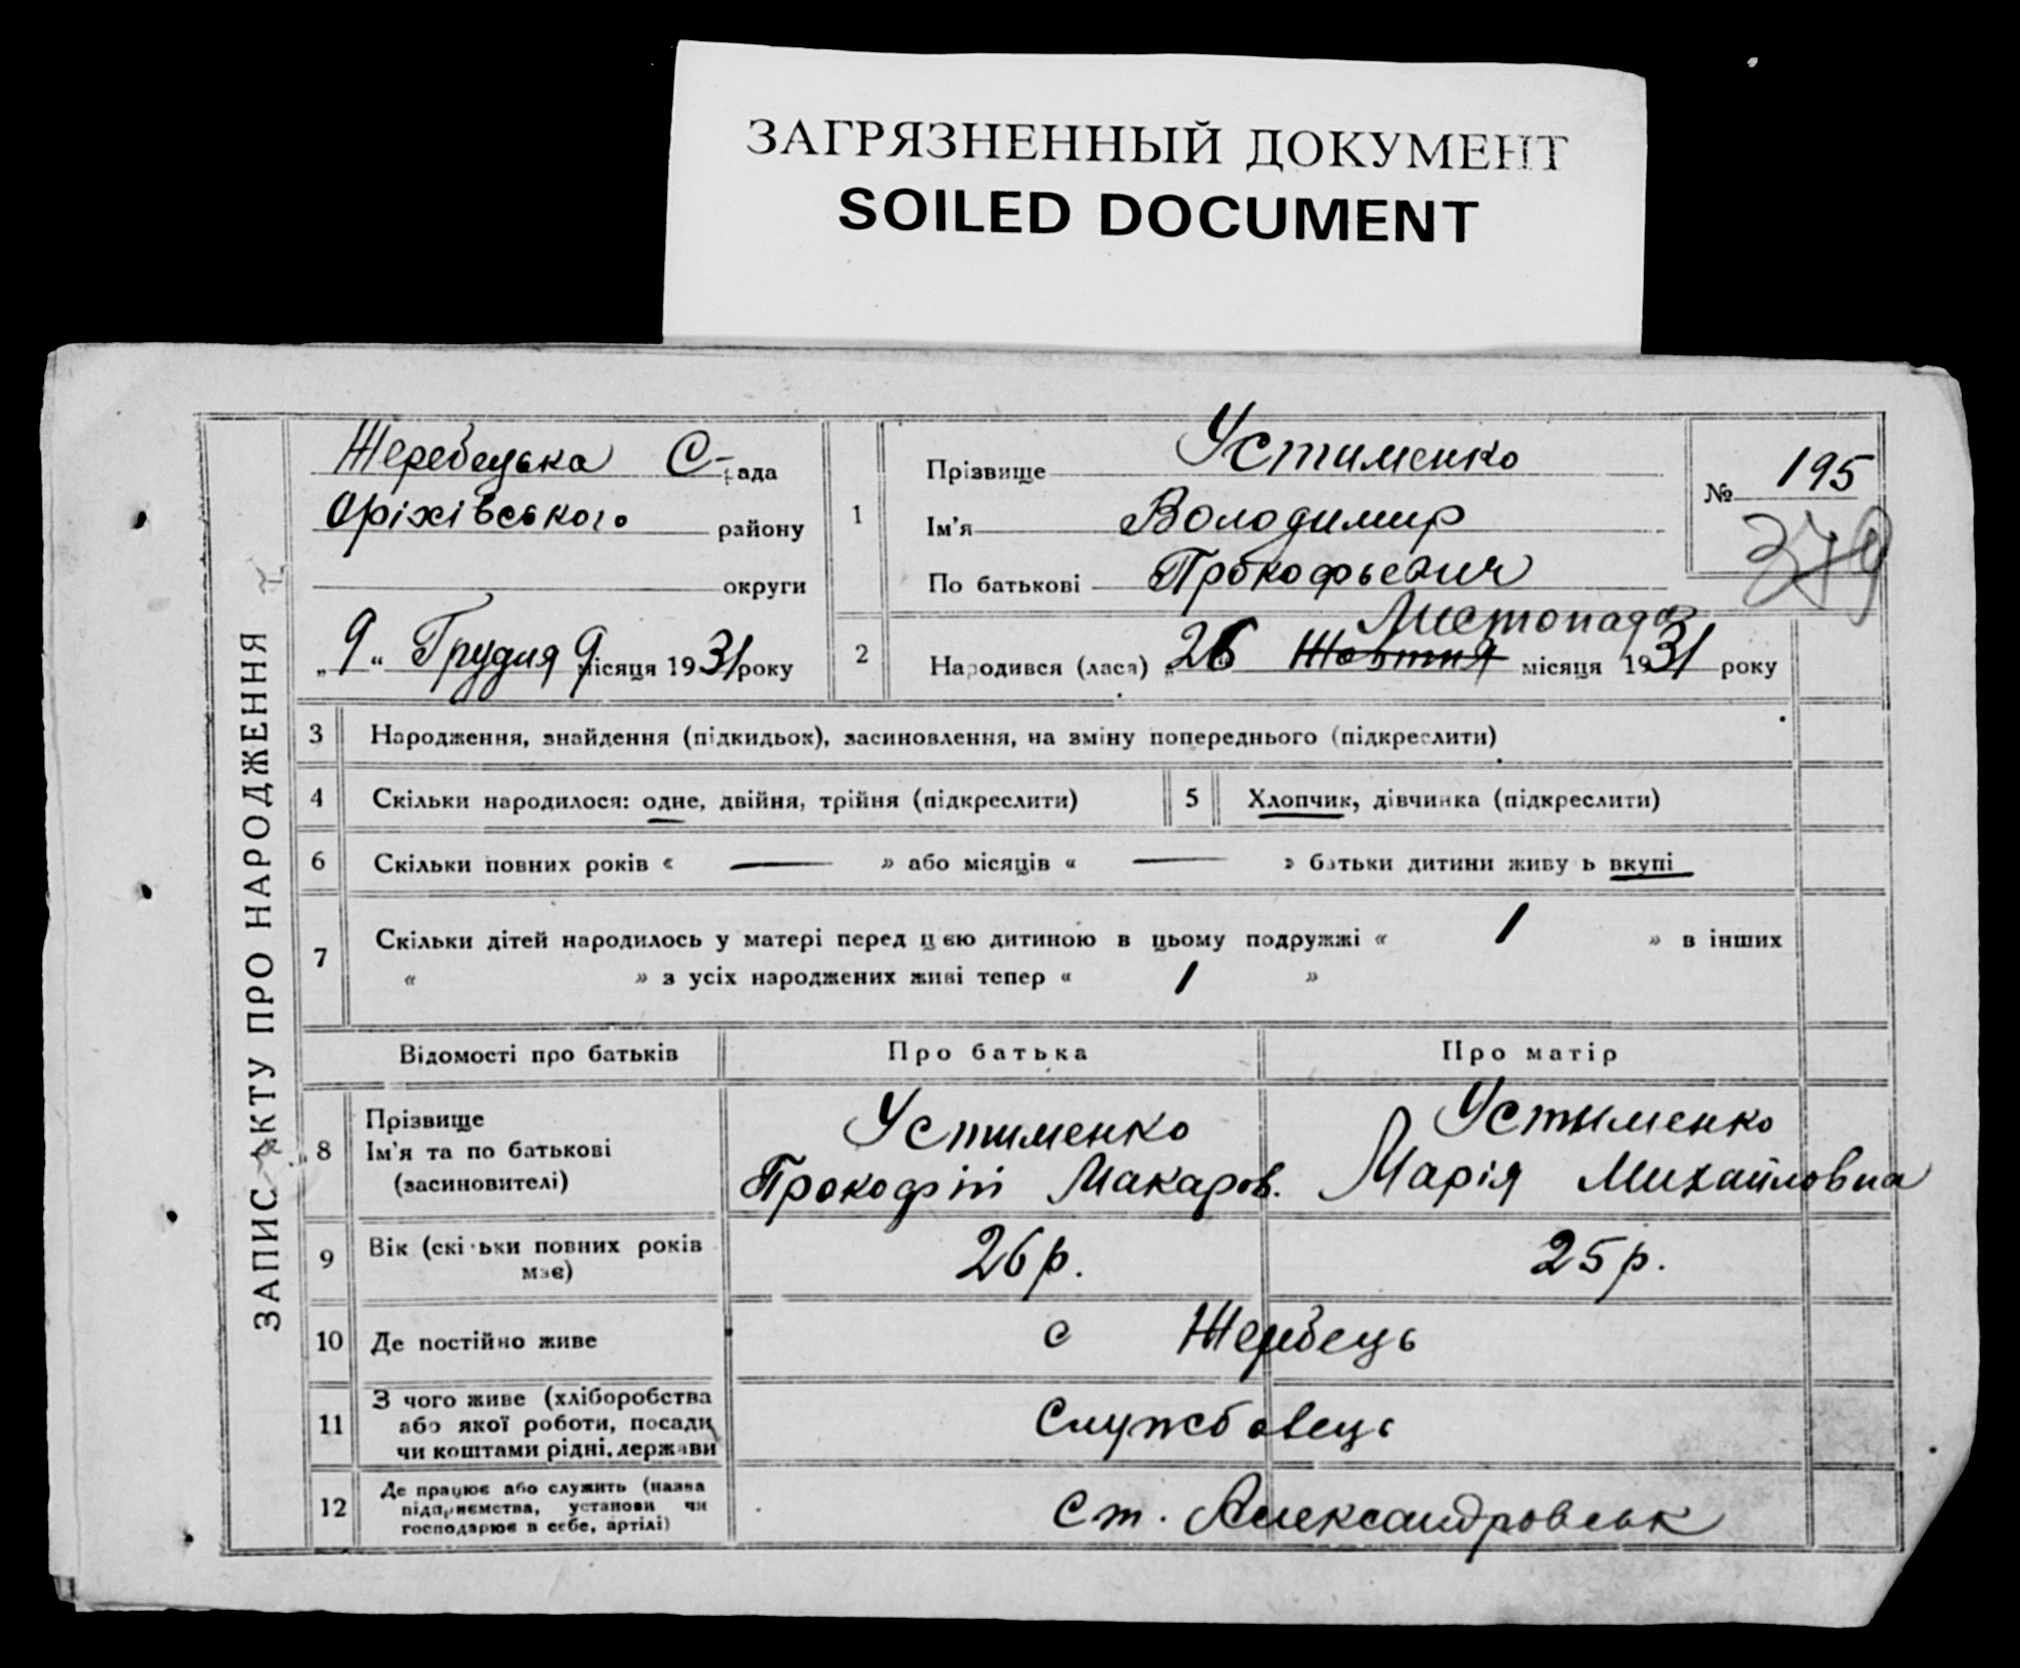 ЗАГРЯЗНЕННЫЙ ДОКУМЕНТ
SOILED DOCUMENT
ЗАПИС АКТУ ПРО НАРОДЖЕННЯ
Жеребецька С-рада
Оріхівського району
округи
„9“ Грудня місяця 1931 року
1
Прізвище Устименко
Ім'я Володимир
По батькові Прокофьевич
№ 195
379
2
Листопада
Народився (лася) „26 Жовтня місяця 1931 року
3 Народження, знайдення (підкидьок), засиновлення, на зміну попереднього (підкреслити)
4 Скільки народилося: одне, двійня, трійня (підкреслити)
5 Хлопчик, дівчинка (підкреслити)
6 Скільки повних років « — » або місяців « — » батьки дитини живуть вкупі
7 Скільки дітей народилось у матері перед цією дитиною в цьому подружжі « 1 » в інших
« » з усіх народжених живі тепер « 1 »
Відомості про батьків Про батька Про матір
8 Прізвище
Ім'я та по батькові
(засиновителі)
Устименко
Прокофій Макаров.
Устименко
Марія Михайловна
9 Вік (скільки повних років
має)
26 р.
25 р.
10 Де постійно живе
с Жеребець
11 З чого живе (хліборобства
або якої роботи, посади
чи коштами рідні, держави
Службовець
12 Де працює або служить (назва
підприємства, установи чи
господарює в себе, артілі)
Ст. Александровськ